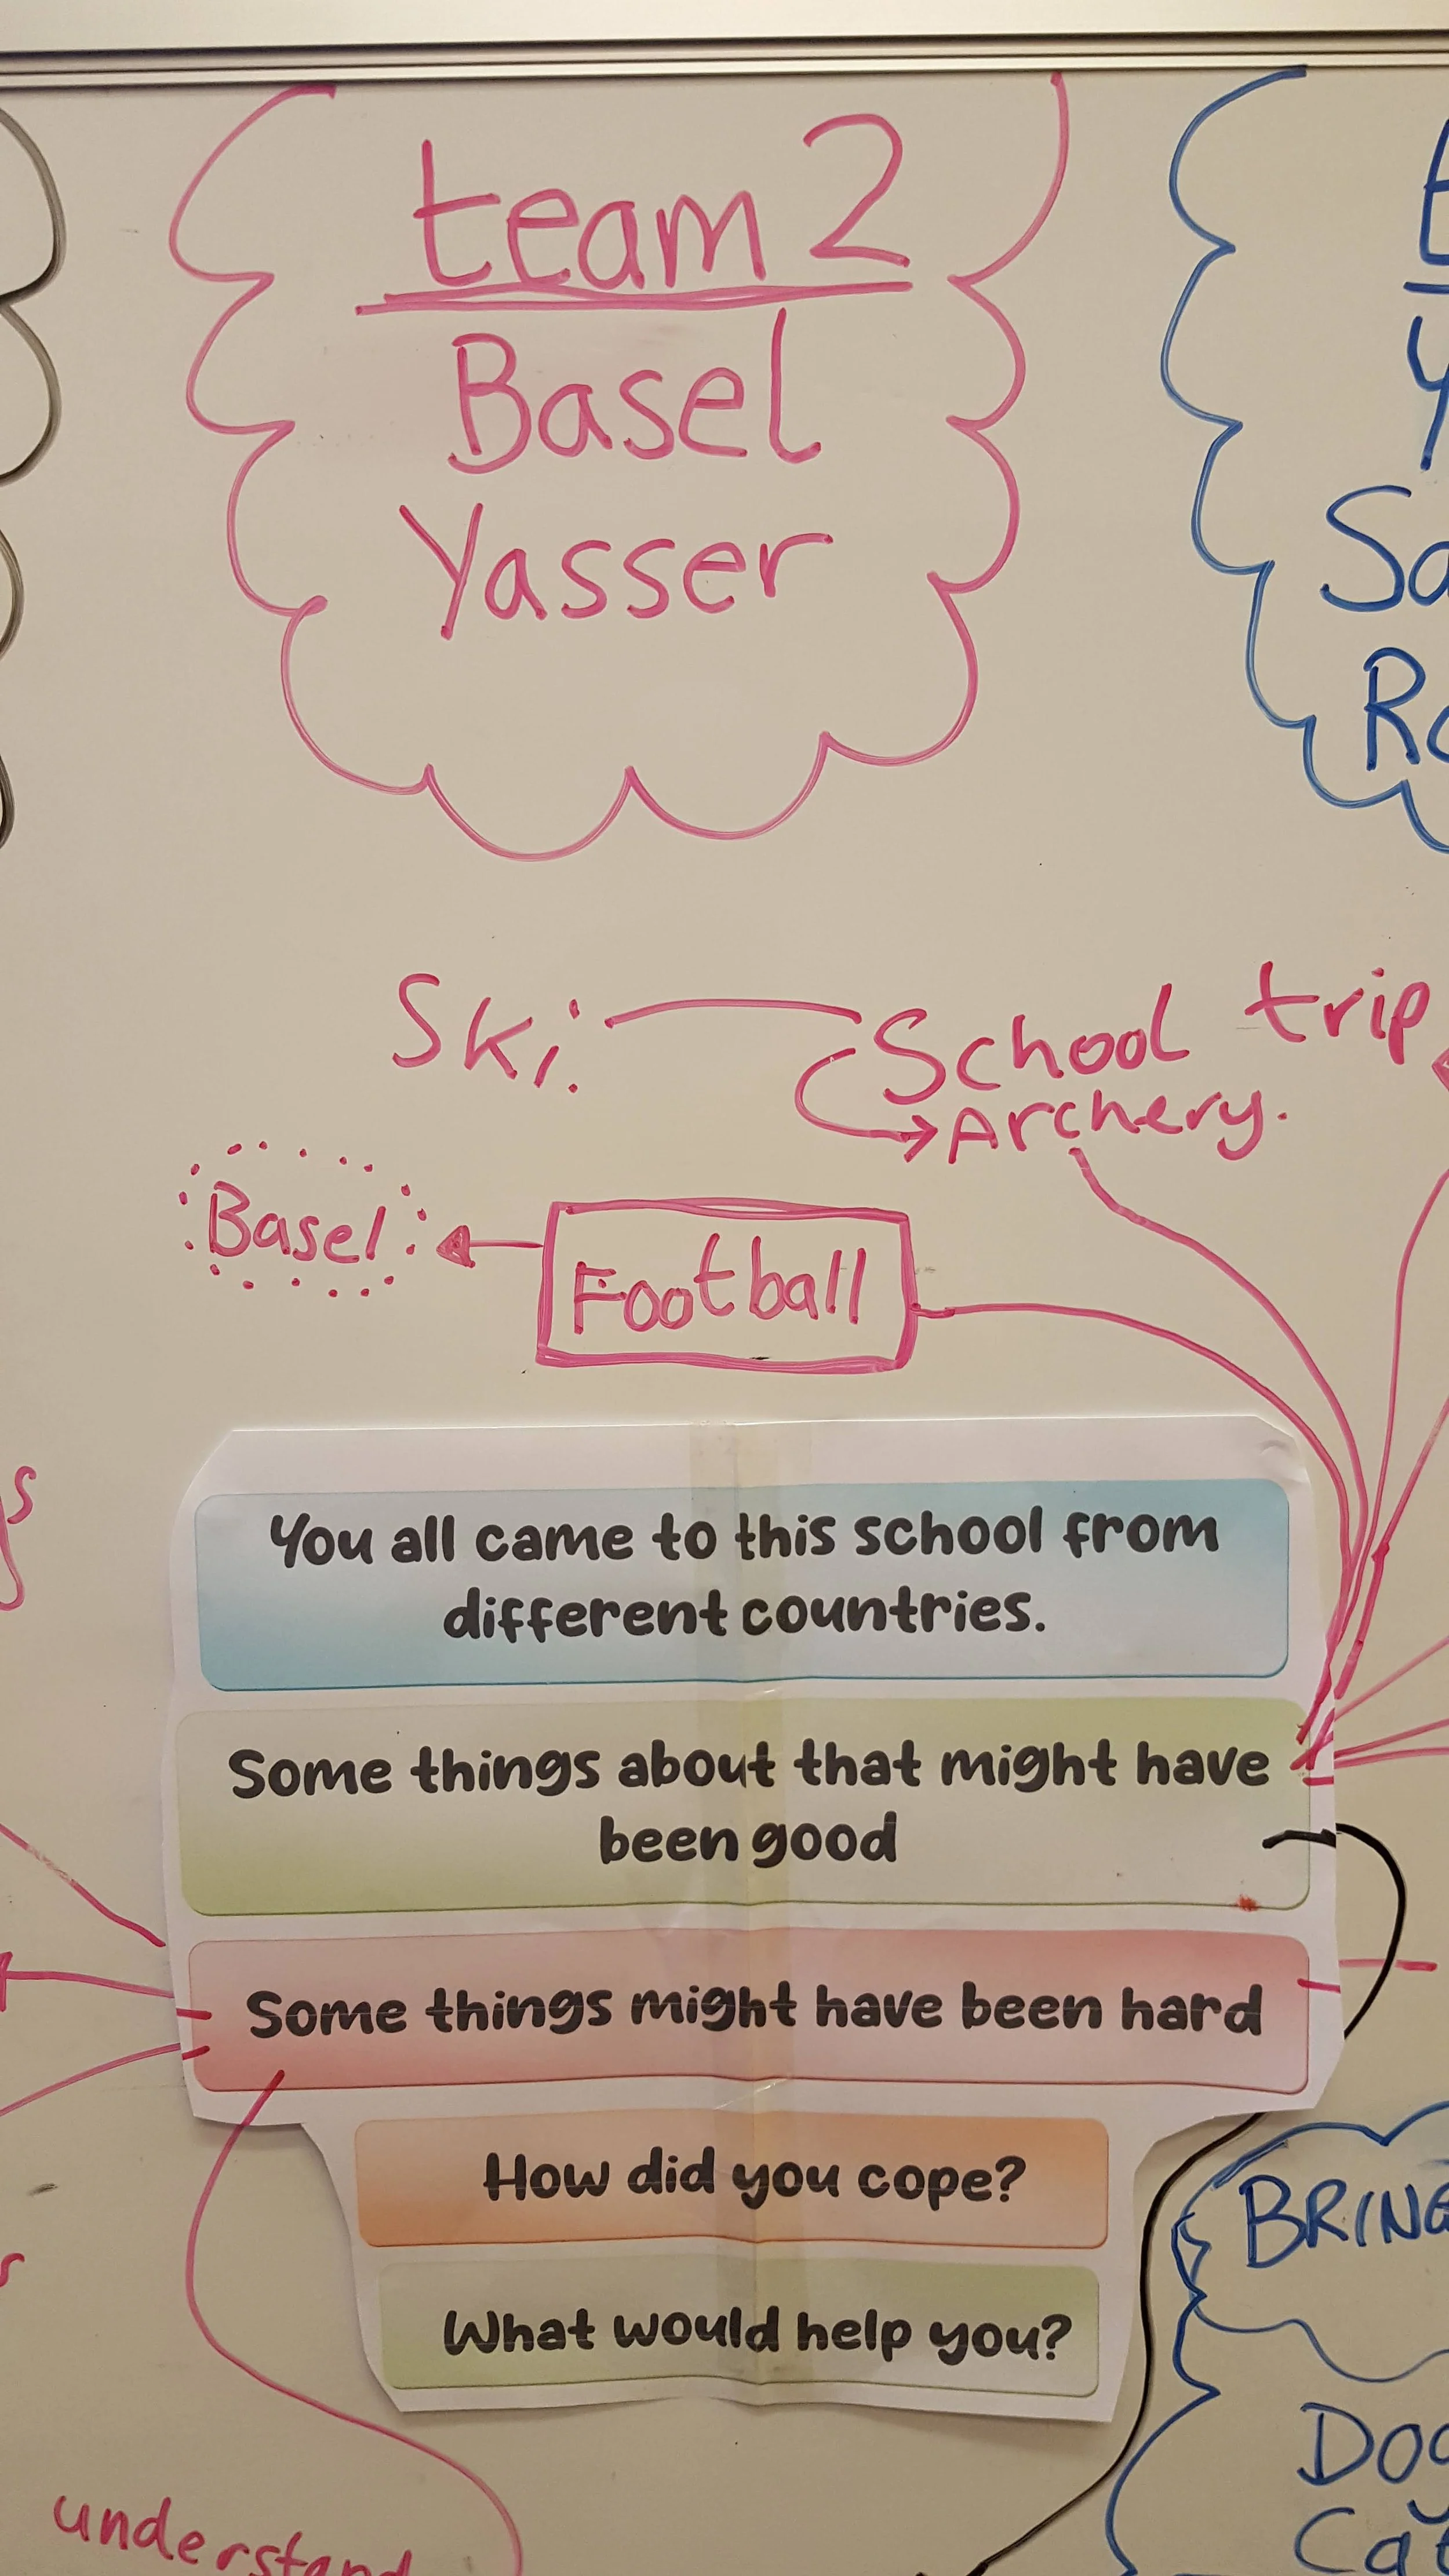 team 2
Basel
Yasser
Ski.
School trip
Archery.
Basel
Football
You all came to this school from
different countries.
Some things about that might have
been good
Some things might have been hard
How did you cope?
What would help you?
BRING
understand